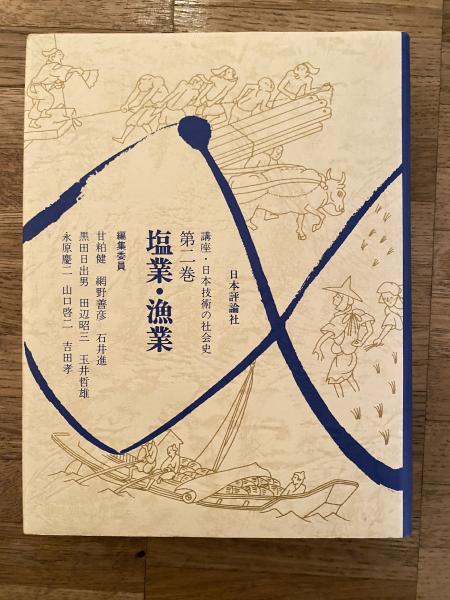 日本評論社
講座・日本技術の社会史
第二巻
塩業・漁業
編集委員
甘粕健 網野善彦 石井進
黒田日出男 田辺昭三 玉井哲雄
永原慶二 山口啓二 吉田孝